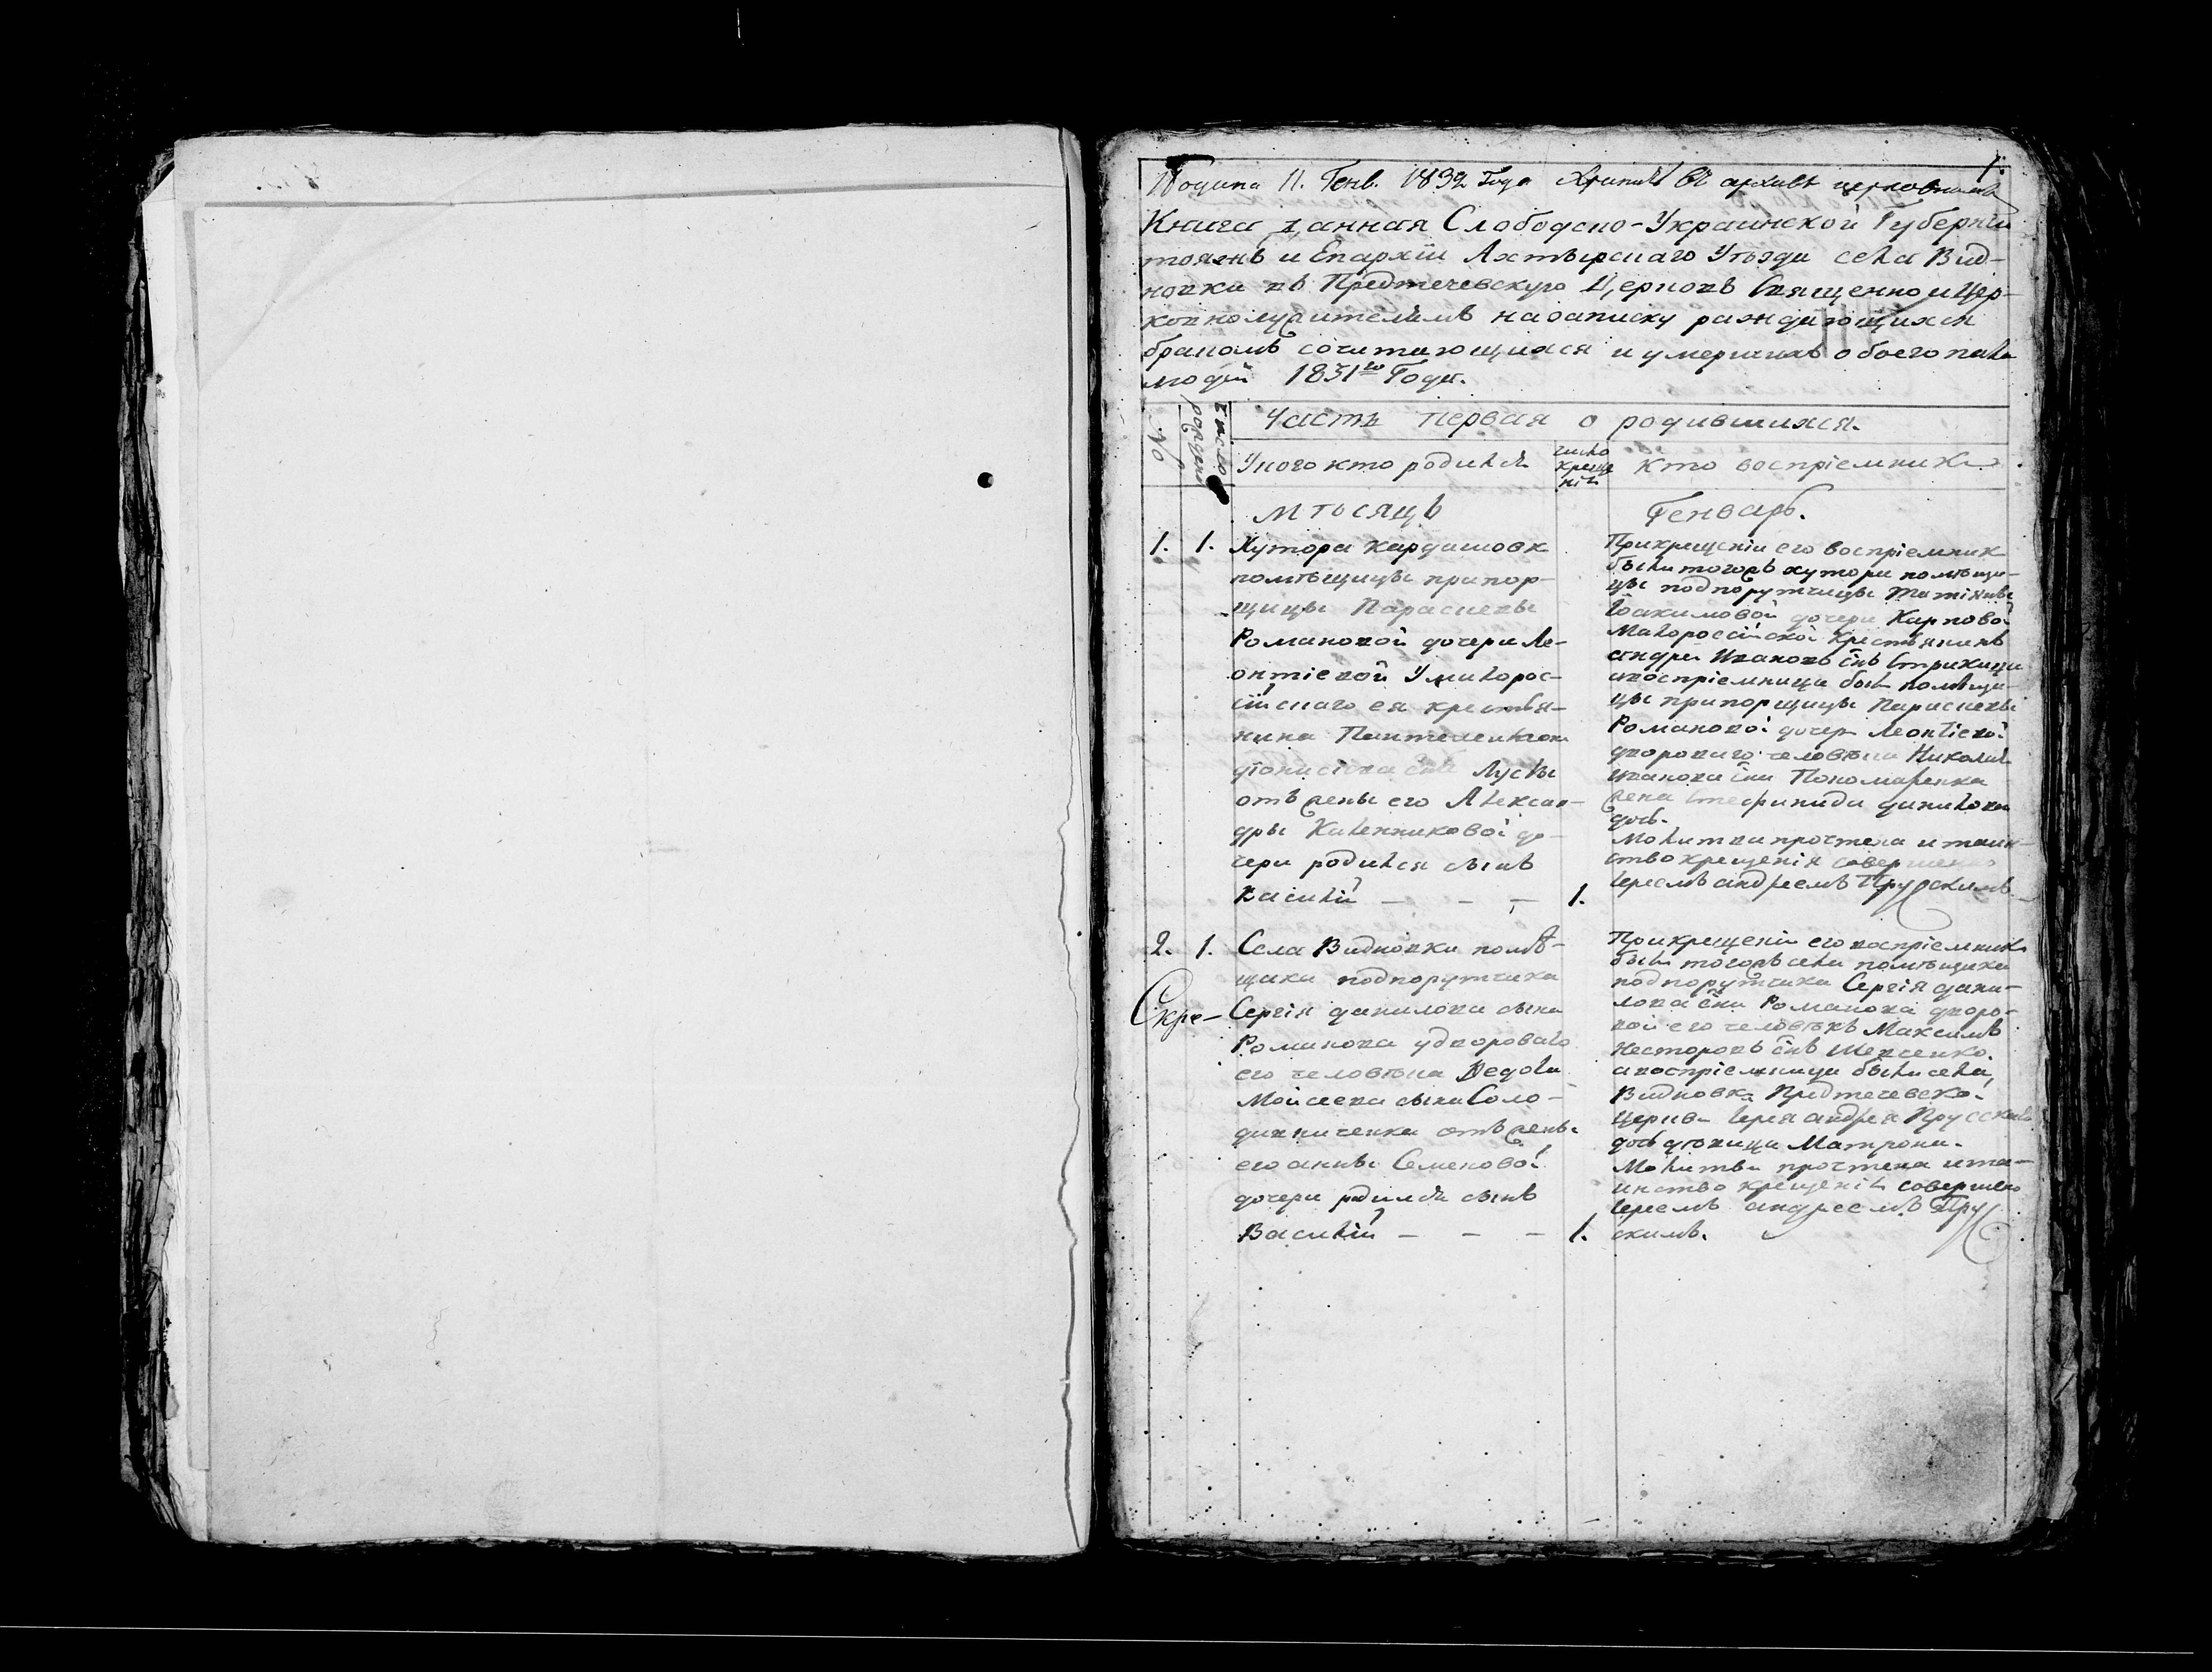 1.
Подана 11. Генв. 1832 Года Хранить въ архивѣ церковномъ
Книга данная Слободско-Украинской Губерніи
тояжъ и Епархіи Ахтырскаго Уѣзда села Вид-
новки въ Предтечевскую Церковь Священно и Цер-
ковнослужителямъ на записку раждающихся
бракомъ сочитающихся и умершихъ обоего пола
людей 1831го Года.
Часть первая о родившихся.
№
число рожденія
У кого кто родился
число
креще
нія
кто воспріемники
Мѣсяцъ Генварь.
1. 1. Хутора Кардашовк
помѣщицы прапор-
щицы Параскевы
Романовой дочери Ле-
онтіевой У малорос-
сійскаго ея крестья-
нина
Діонисіева сна Лусты
отъ жены его Алексан-
дры Калениковой до-
чери родился сынъ
Василій — — — 1.
Прикрещеніи его воспріемник
были тогожъ хутора помѣщи-
цы подпорутчицы Татіяны
Іоакимовой дочери Карповой
Малороссійской крестьянинъ
андрей Ивановъ снъ
ивоспріемница был помѣщи-
цы прапорщицы Параскевы
Романовой дочер Леонтіевой
двороваго человѣка Николая
иванова сна Пономаренка
жена Стефанида данилова
дочь.
Молитва прочтена и таин-
ство крещенія совершено
Іереемъ андреемъ Прусскимъ
2. 1. Села Видновки помѣ-
щика подпорутчика
Скре- Сергія данилова сына
Романова удвороваго
его человѣка Ѳедота
Мойсеева сына Соло-
дивниченка отъ жены
его анны Семеновой
дочери родился сынъ
Василій — — — 1.
Прикрещеніи его воспріемник
были тогожъ села помѣщика
подпорутчика Сергія дани-
лова сна Романова дворо-
вой его человѣкъ Максимъ
Несторовъ снъ Шевченко.
авоспріемница была села
Видновк Предтечевской
Церкви Іерея андрея Прусскаго
дочь дѣвица Матрона.
Молитва прочтена ита-
инство крещенія совершено
Іереемъ андреемъ Прус
скимъ.